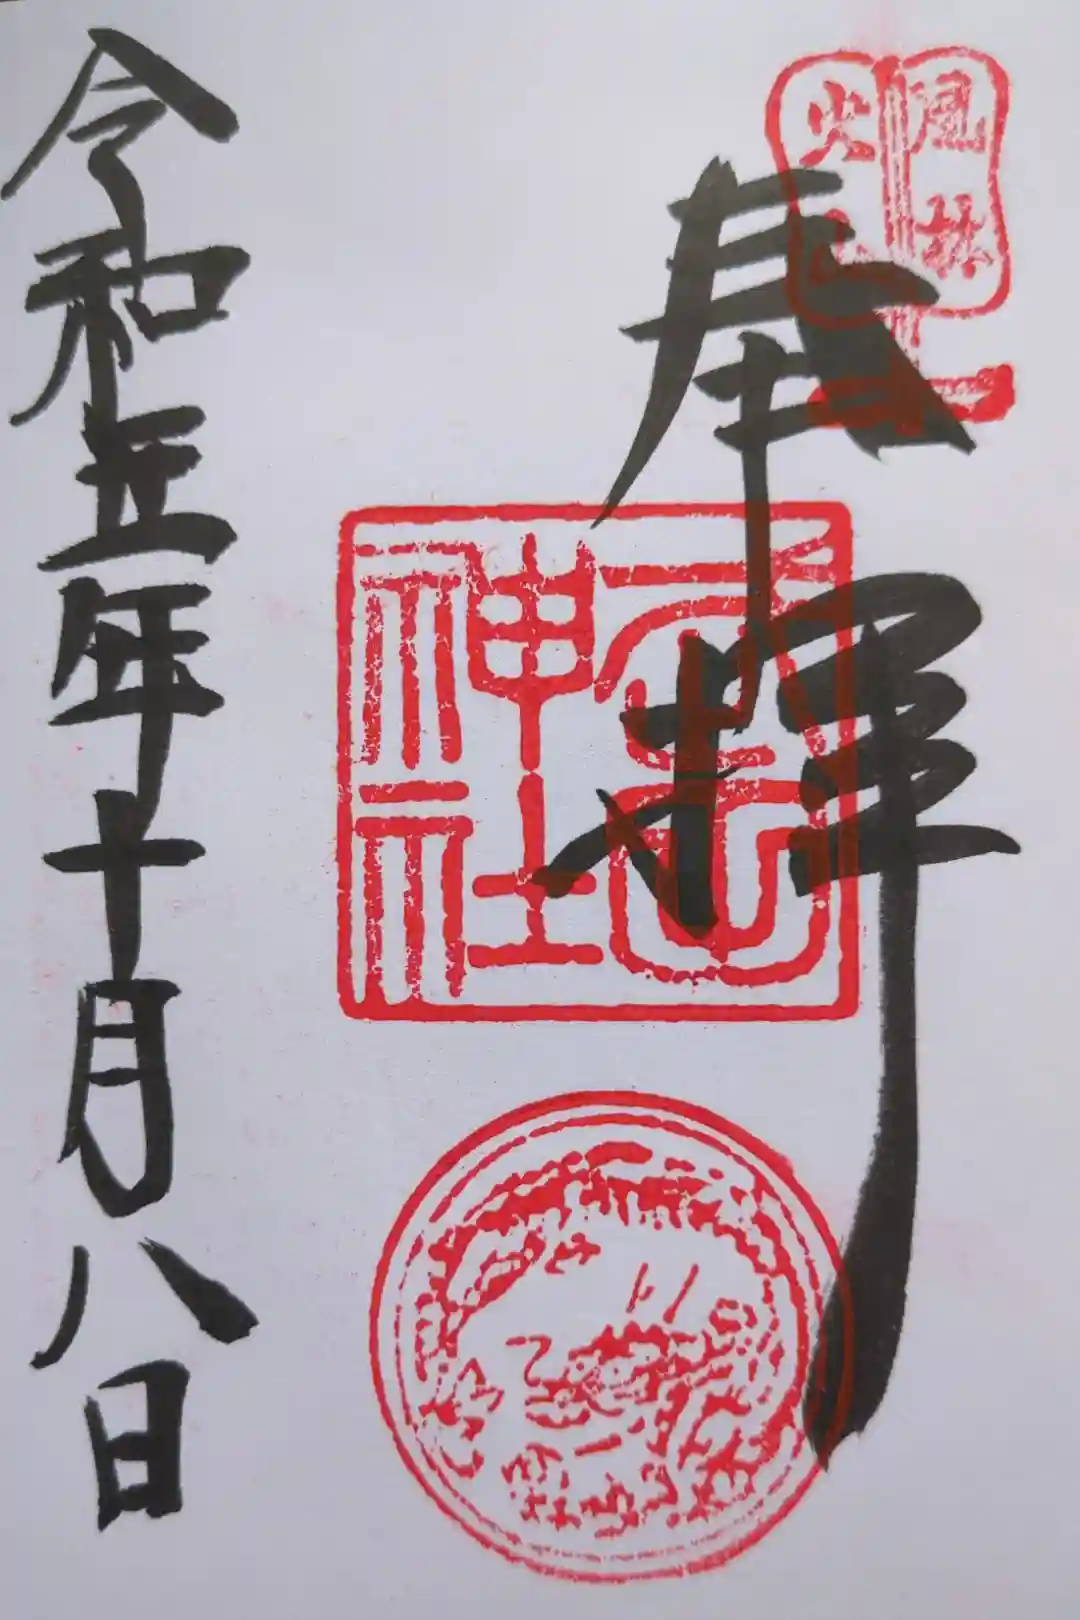 風林
火山
奉拝
武田
神社
令和五年十月八日